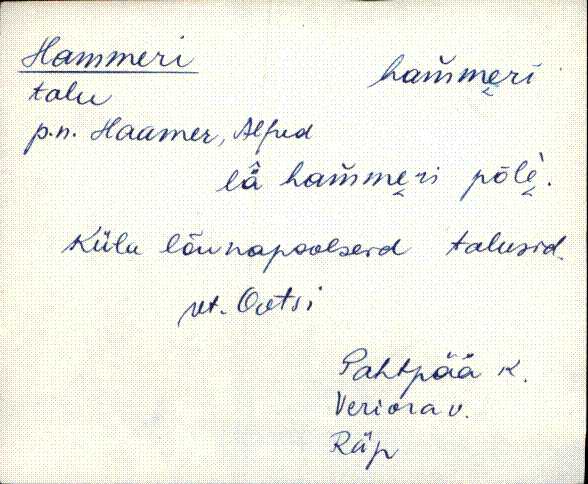 Hammeri ham̆meri
talu
p.n. Haamer, Alfred
lä̂ ham̆meri põlè.
Küla lõunapoolseid talusid.
vt. Ootsi
Pahtpää k.
Veriora v.
Räp